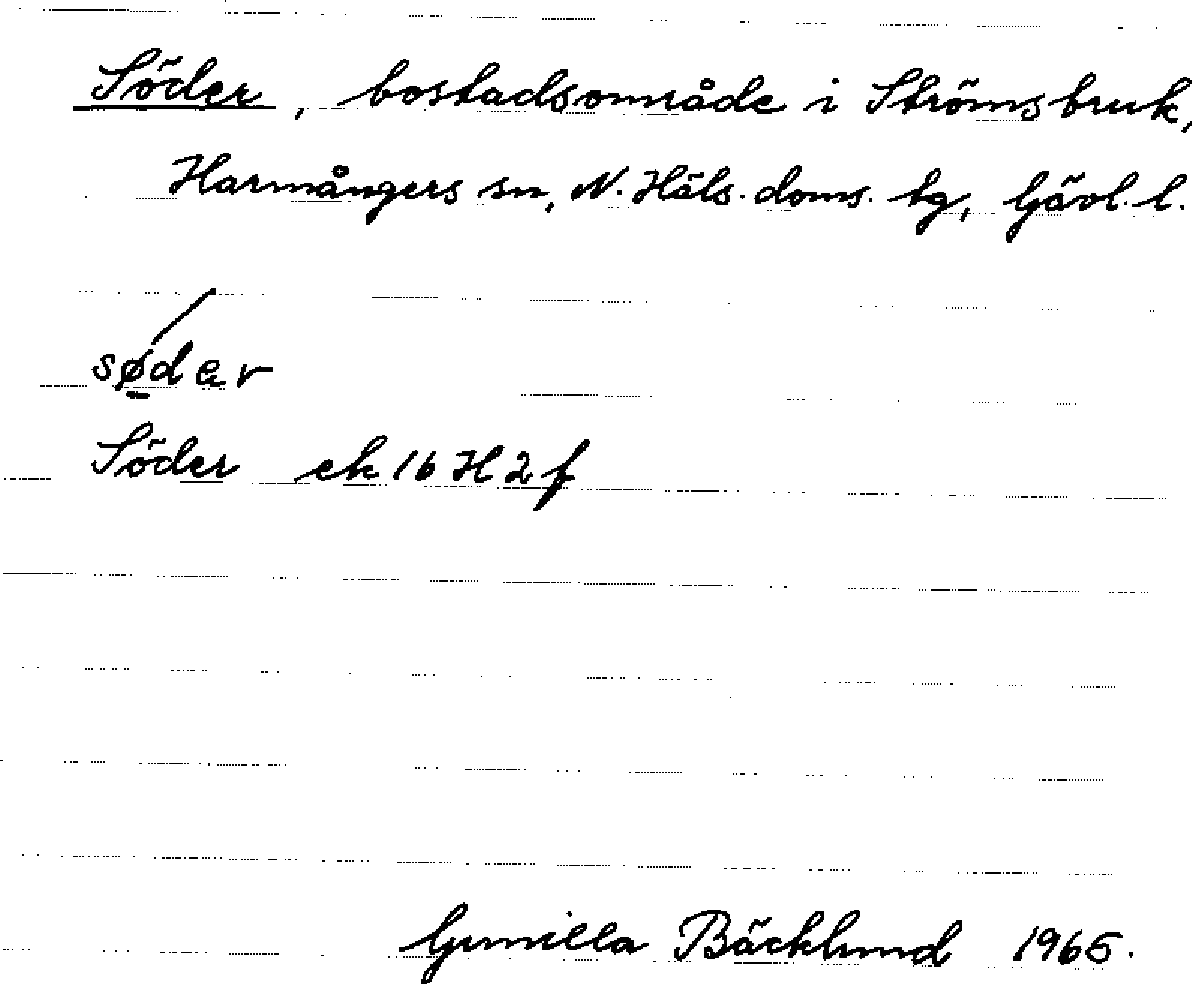 Söder, bostadsområde i Strömsbruk,
Harmångers sn, N. Häls. doms. tg, Gävl. l.
sǿ̠dər
Söder ek 16 H 2 f
Gunilla Bäcklund 1965.